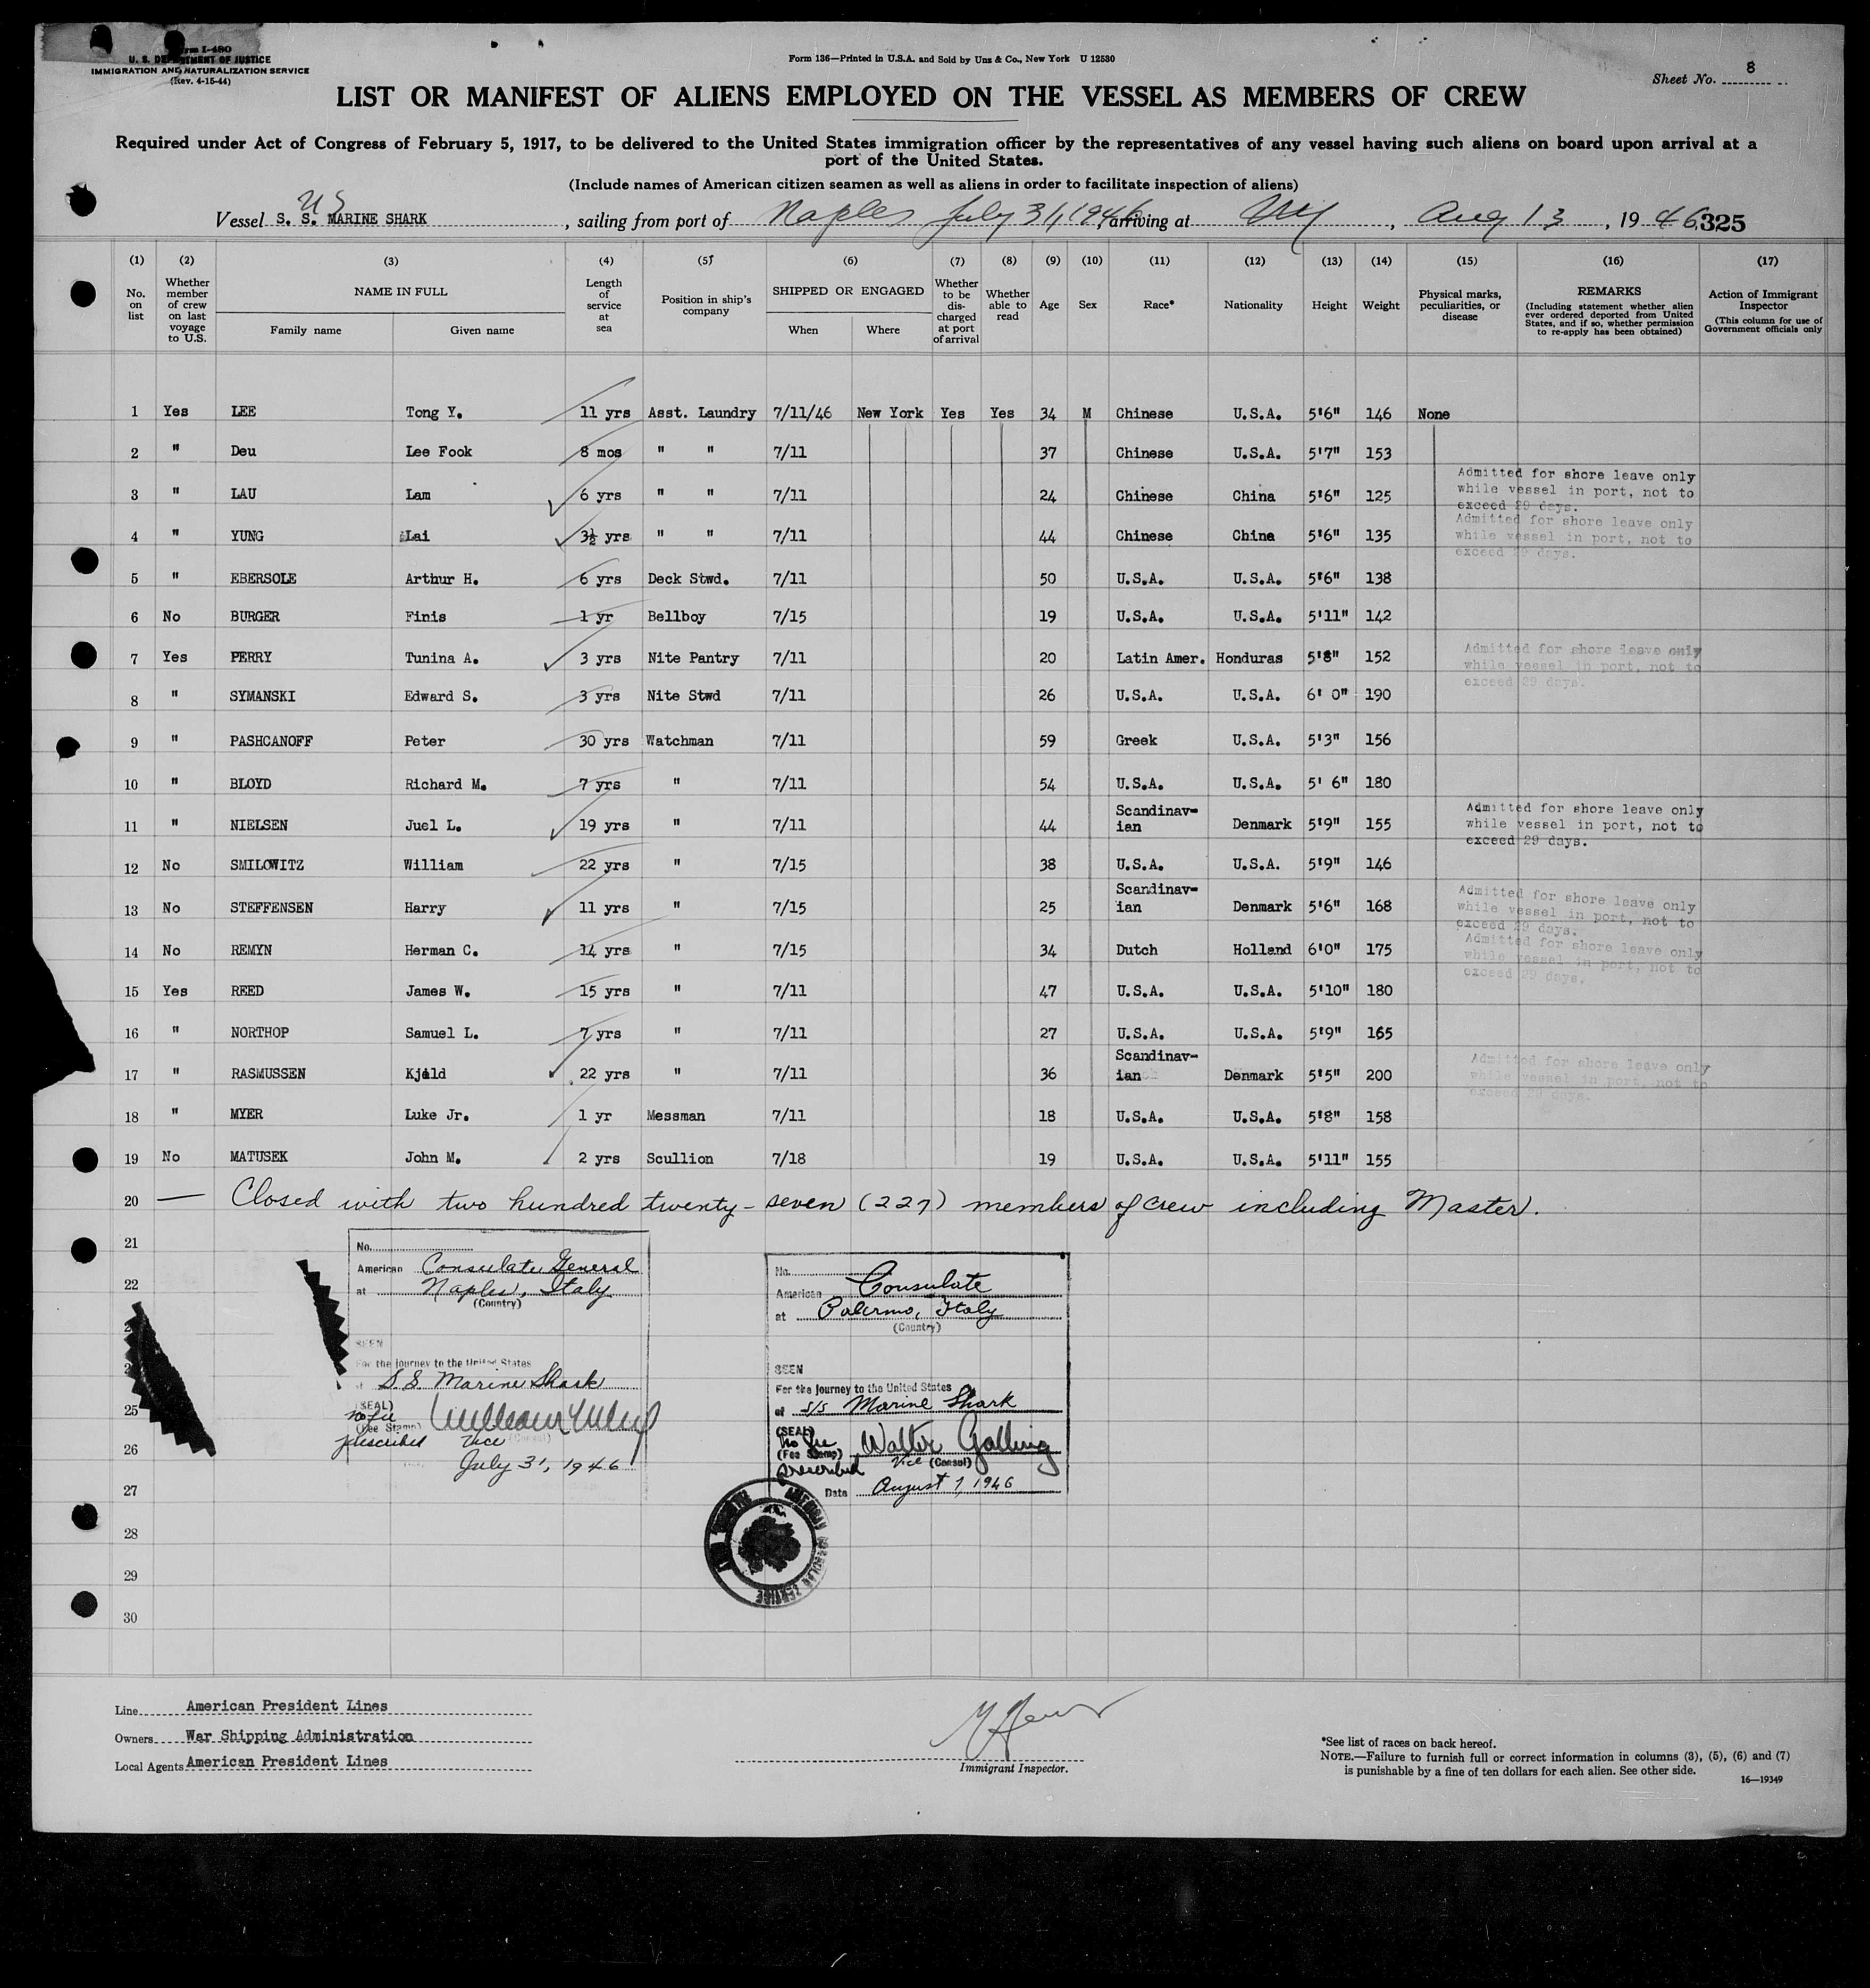 Form I-480
U. S. DEPARTMENT OF JUSTICE
IMMIGRATION AND NATURALIZATION SERVICE
(Rev. 4-15-44)
Form 136—Printed in U.S.A. and Sold by Unz & Co., New York U 12530
Sheet No. 8
LIST OR MANIFEST OF ALIENS EMPLOYED ON THE VESSEL AS MEMBERS OF CREW
Required under Act of Congress of February 5, 1917, to be delivered to the United States immigration officer by the representatives of any vessel having such aliens on board upon arrival at a
port of the United States.
(Include names of American citizen seamen as well as aliens in order to facilitate inspection of aliens)
US
Vessel S. S. MARINE SHARK, sailing from port of Naples July 31, 1946, arriving at NY, Aug 13, 1946 325
(1) (2) (3) (4) (5) (6) (7) (8) (9) (10) (11) (12) (13) (14) (15) (16) (17)
No. on list
Whether member of crew on last voyage to U.S.
NAME IN FULL
Family name Given name
Length of service at sea
Position in ship's company
SHIPPED OR ENGAGED
When Where
Whether to be discharged at port of arrival
Whether able to read
Age
Sex
Race*
Nationality
Height
Weight
Physical marks, peculiarities, or disease
REMARKS
(Including statement whether alien ever ordered deported from United States, and if so, whether permission to re-apply has been obtained)
Action of Immigrant Inspector
(This column for use of Government officials only
1 Yes LEE Tong Y. 11 yrs Asst. Laundry 7/11/46 New York Yes Yes 34 M Chinese U.S.A. 5'6" 146 None
2 " Deu Lee Fook 8 mos " " 7/11 37 Chinese U.S.A. 5'7" 153
3 " LAU Lam 6 yrs " " 7/11 24 Chinese China 5'6" 125 Admitted for shore leave only
while vessel in port, not to
exceed 29 days.
4 " YUNG Lai 3½ yrs " " 7/11 44 Chinese China 5'6" 135 Admitted for shore leave only
while vessel in port, not to
exceed 29 days.
5 " EBERSOLE Arthur H. 6 yrs Deck Stwd. 7/11 50 U.S.A. U.S.A. 5'6" 138
6 No BURGER Finis 1 yr Bellboy 7/15 19 U.S.A. U.S.A. 5'11" 142
7 Yes PERRY Tunina A. 3 yrs Nite Pantry 7/11 20 Latin Amer. Honduras 5'8" 152 Admitted for shore leave only
while vessel in port, not to
exceed 29 days.
8 " SYMANSKI Edward S. 3 yrs Nite Stwd 7/11 26 U.S.A. U.S.A. 6' 0" 190
9 " PASHCANOFF Peter 30 yrs Watchman 7/11 59 Greek U.S.A. 5'3" 156
10 " BLOYD Richard M. 7 yrs " 7/11 54 U.S.A. U.S.A. 5' 6" 180
11 " NIELSEN Juel L. 19 yrs " 7/11 44 Scandinav-ian Denmark 5'9" 155 Admitted for shore leave only
while vessel in port, not to
exceed 29 days.
12 No SMILOWITZ William 22 yrs " 7/15 38 U.S.A. U.S.A. 5'9" 146
13 No STEFFENSEN Harry 11 yrs " 7/15 25 Scandinav-ian Denmark 5'6" 168 Admitted for shore leave only
while vessel in port, not to
exceed 29 days.
14 No REMYN Herman C. 14 yrs " 7/15 34 Dutch Holland 6'0" 175 Admitted for shore leave only
while vessel in port, not to
exceed 29 days.
15 Yes REED James W. 15 yrs " 7/11 47 U.S.A. U.S.A. 5'10" 180
16 " NORTHOP Samuel L. 7 yrs " 7/11 27 U.S.A. U.S.A. 5'9" 165
17 " RASMUSSEN Kjild 22 yrs " 7/11 36 Scandinav-ian Denmark 5'5" 200 Admitted for shore leave only
while vessel in port, not to
exceed 29 days.
18 " MYER Luke Jr. 1 yr Messman 7/11 18 U.S.A. U.S.A. 5'8" 158
19 No MATUSEK John M. 2 yrs Scullion 7/18 19 U.S.A. U.S.A. 5'11" 155
20 — Closed with two hundred twenty-seven (227) members of crew including Master.
21
22
25
26
27
28
29
30
No.
American Consulate General
at Naples, Italy
(Country)
SEEN
For the journey to the United States
S.S. Marine Shark
(SEAL)
no fee
(Fee Stamp)
prescribed
Vice (Consul)
July 31, 1946
No.
American Consulate
at Palermo, Italy
(Country)
SEEN
For the journey to the United States
of S/S Marine Shark
(SEAL)
no fee
(Fee Stamp)
prescribed
Walter
Vice (Consul)
Date August 1, 1946
AMERICAN CONSULAR SERVICE
Line American President Lines
Owners War Shipping Administration
Local Agents American President Lines
Immigrant Inspector.
*See list of races on back hereof.
NOTE.—Failure to furnish full or correct information in columns (3), (5), (6) and (7)
is punishable by a fine of ten dollars for each alien. See other side.
16—19349